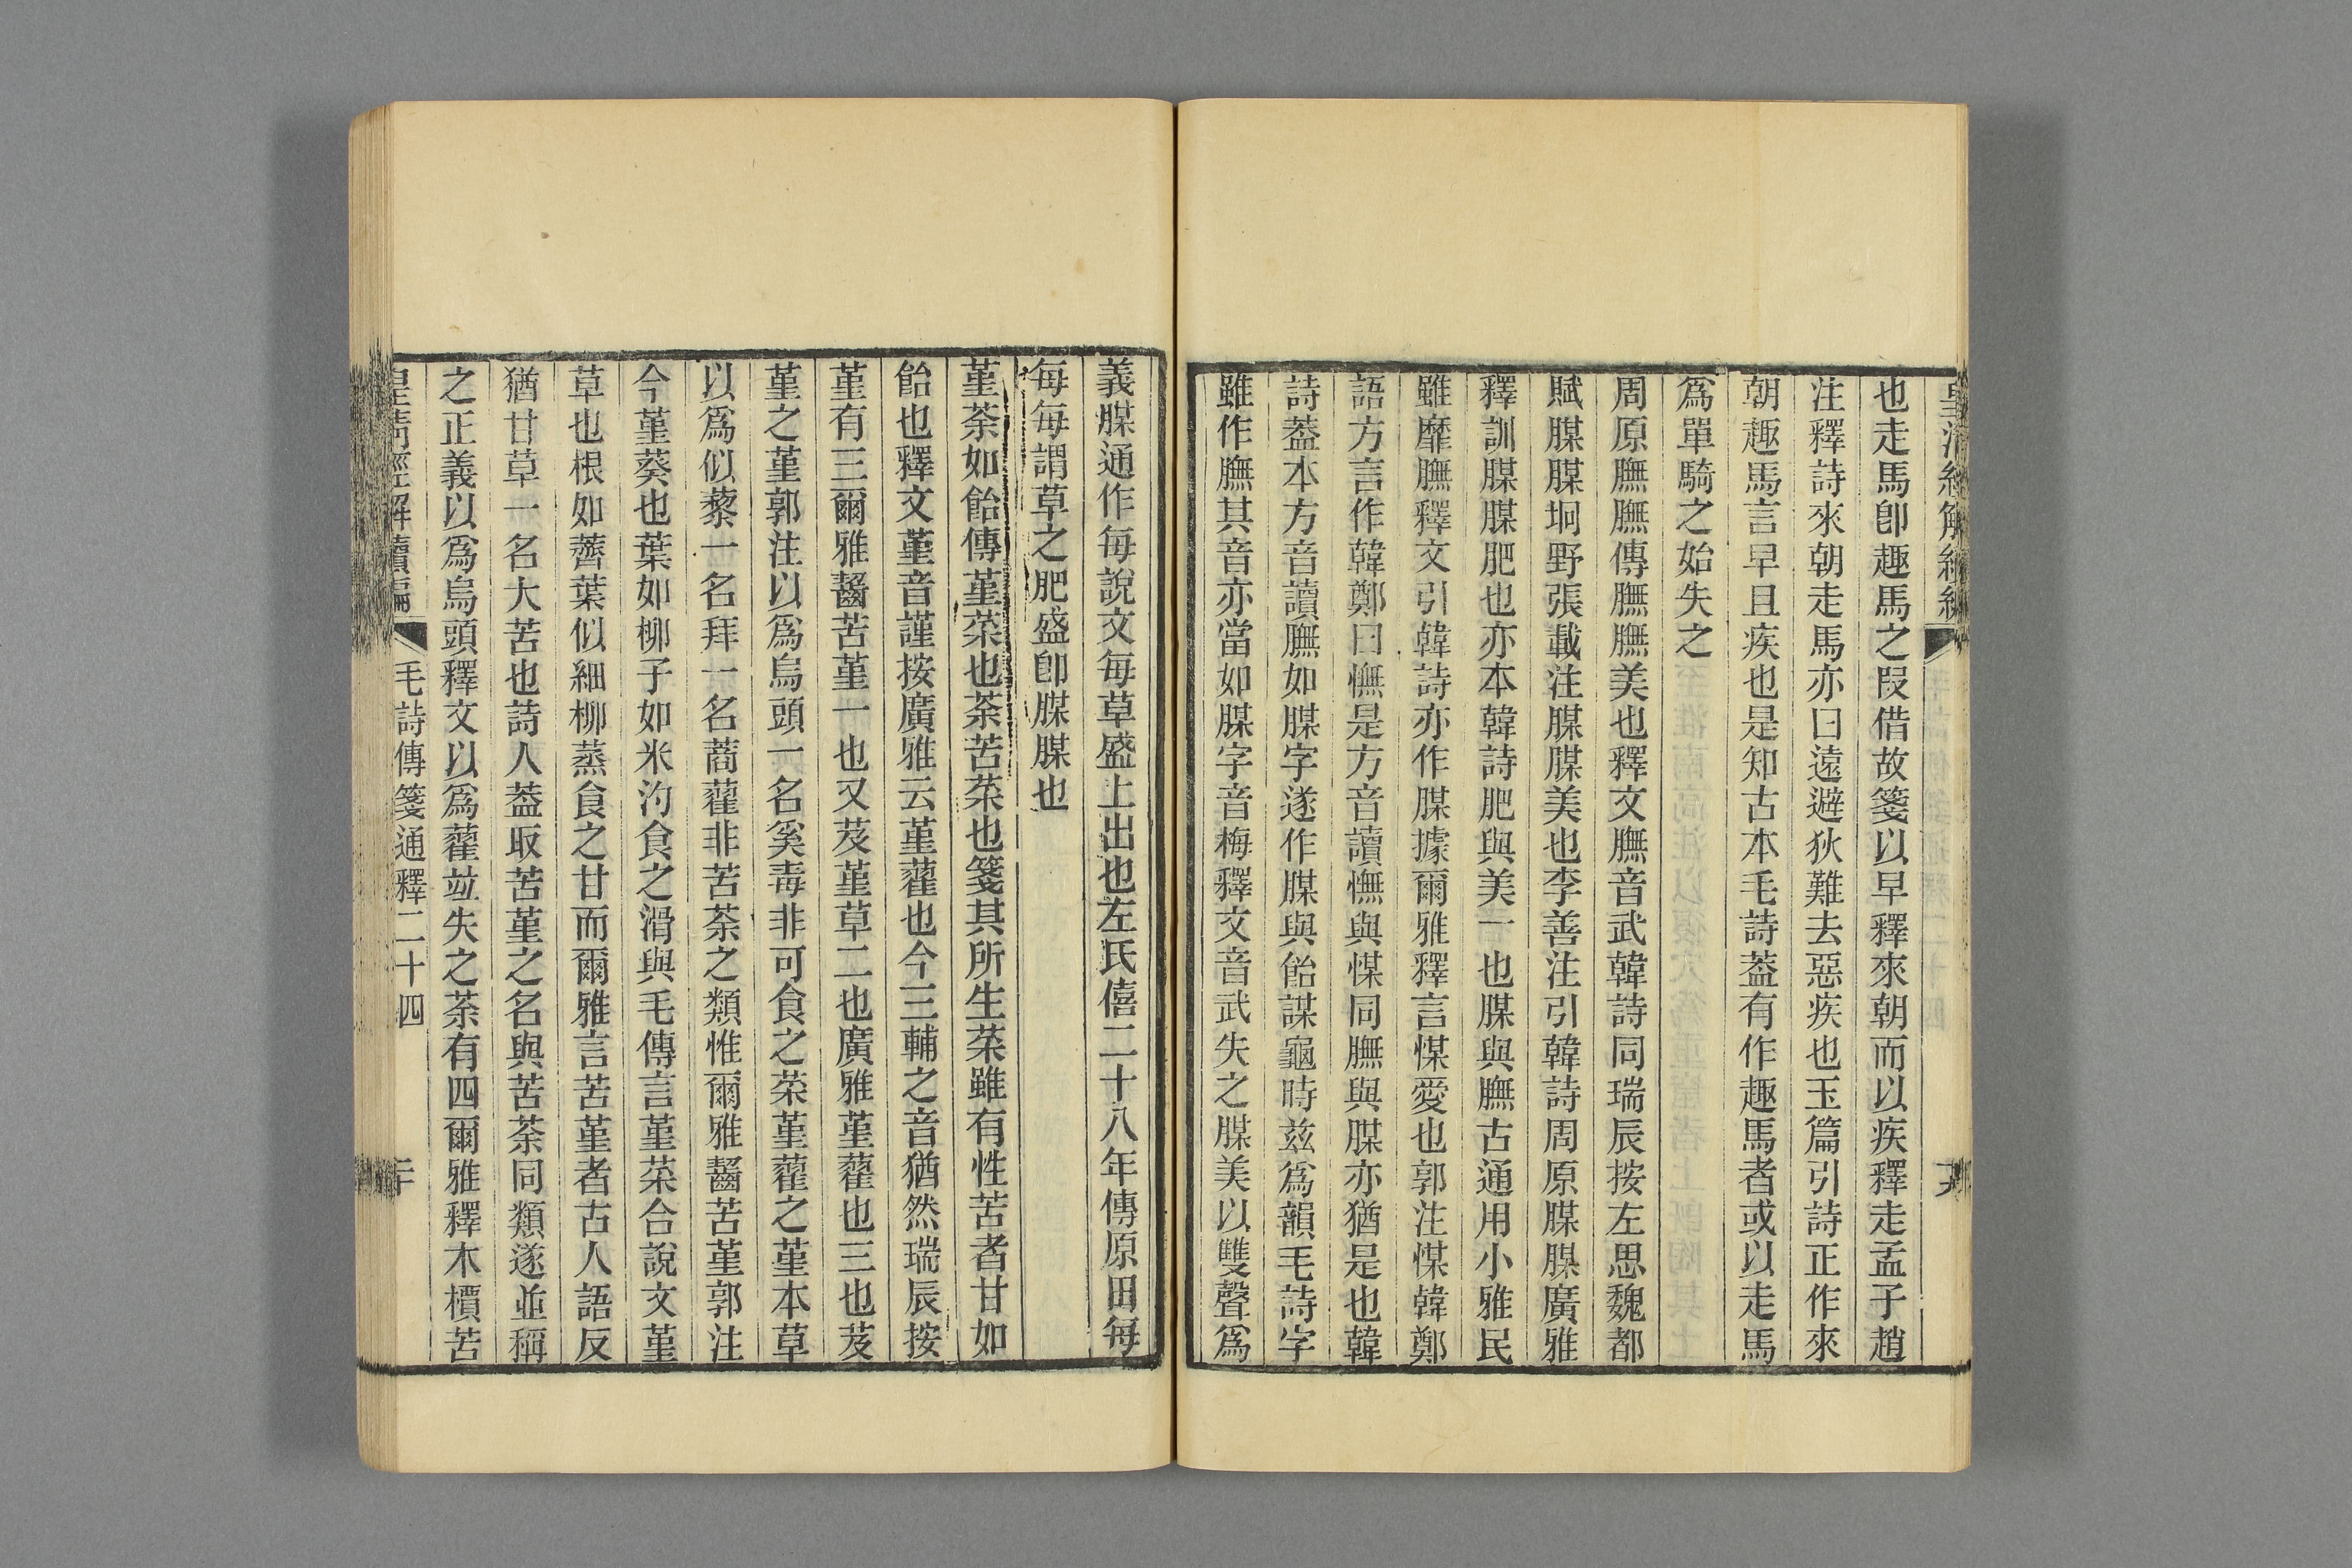 皇清經解續編
也走馬卽趣馬之叚借故箋以早釋來朝而以疾釋走孟子趙
注釋詩來朝走馬亦曰遠避狄難去惡疾也玉篇引詩正作來
朝趣馬言早且疾也是知古本毛詩葢有作趣馬者或以走馬
爲單騎之始失之
周原膴膴傳膴膴美也釋文膴音武韓詩同瑞辰按左思魏都
賦腜腜坰野張載注腜腜美也李善注引韓詩周原腜腜廣雅
釋訓腜腜肥也亦本韓詩肥與美一也腜與膴古通用小雅民
雖靡膴釋文引韓詩亦作腜據爾雅釋言煤愛也郭注煤韓鄭
語方言作韓鄭曰憮是方音讀憮與煤同膴與腜亦猶是也韓
詩葢本方音讀膴如腜字遂作腜與飴謀龜時兹爲韻毛詩字
雖作膴其音亦當如腜字音梅釋文音武失之腜美以雙聲爲
義腜通作每說文每草盛上出也左氏僖二十八年傳原田每
每每謂草之肥盛卽腜腜也
堇荼如飴傳堇菜也荼苦菜也箋其所生菜雖有性苦者甘如
飴也釋文堇音謹按廣雅云堇藋也今三輔之音猶然瑞辰按
堇有三爾雅齧苦堇一也又芨堇草二也廣雅堇藋也三也芨
堇之堇郭注以爲烏頭一名奚毒非可食之菜堇藋之堇本草
以爲似藜一名拜一名蔏藋非苦荼之類惟爾雅齧苦堇郭注
今堇葵也葉如柳子如米汋食之滑與毛傳言堇菜合說文堇
草也根如薺葉似細柳蒸食之甘而爾雅言苦堇者古人語反
猶甘草一名大苦也詩人葢取苦堇之名與苦荼同類遂並稱
之正義以爲烏頭釋文以爲藋竝失之荼有四爾雅釋木檟苦
皇淸經解續編
毛詩傳箋通釋二十四
二十